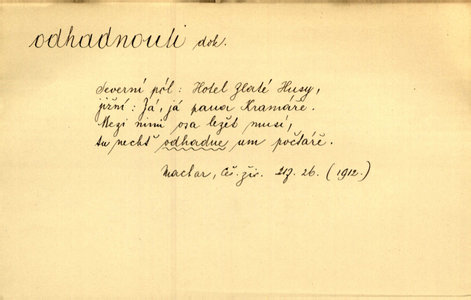 odhadnouti dok.
Severní pól: Hotel Zlaté Husy,
jižní: Já, já pana Kramáře.
Mezi nimi osa ležet musí,
tu nechť odhadne um počtáře.
Machar, Čs. živ. 26. (1912.)